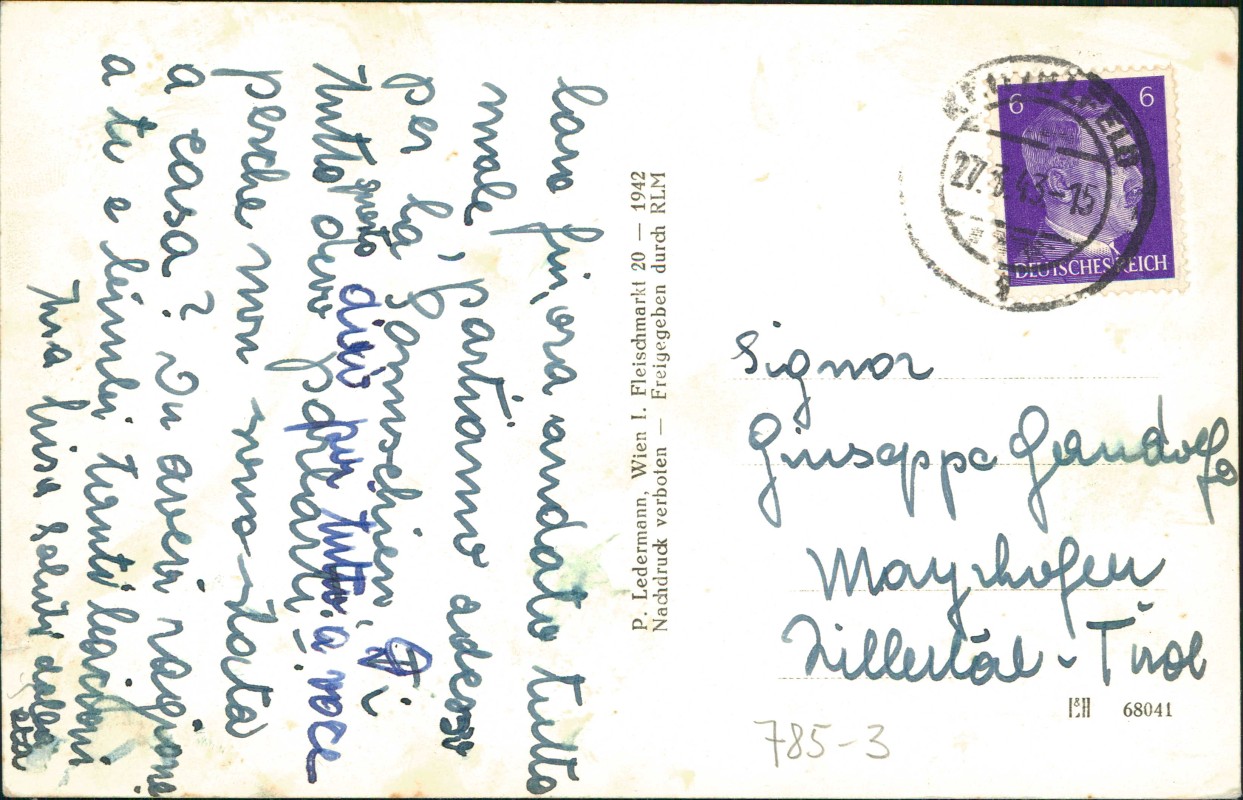 Caro fin'ora andato tutto
male, partiamo adesso
per la
tutto devo
dirò pur tutto a voce
perche non sono stata
a casa? Tu avevi ragione
a te e bimbi tanti bacioni
Tua Luisa Saluti dalla
P. Ledermann, Wien I. Fleischmarkt 20 — 1942
Nachdruck verboten — Freigegeben durch RLM
6 6
27. 43-15
DEUTSCHES REICH
Signor
Giuseppe Gandolfo
Mayrhofen
Zillertal - Tirol
68041
785-3